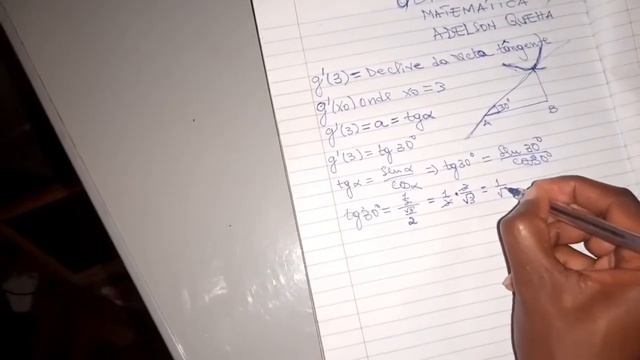 MATEMÁTICA
ADELSON QUEHA
g'(3) = Declive da recta tângente
g'(x0) onde x0 = 3
g'(3) = a = tgα
30°
A
B
g'(3) = tg 30°
tgα = sinα/cosα ⇒ tg 30° = sin 30°/cos 30°
tg 30° = (1/2)/(√3/2) = 1/2 · 2/√3 = 1/√